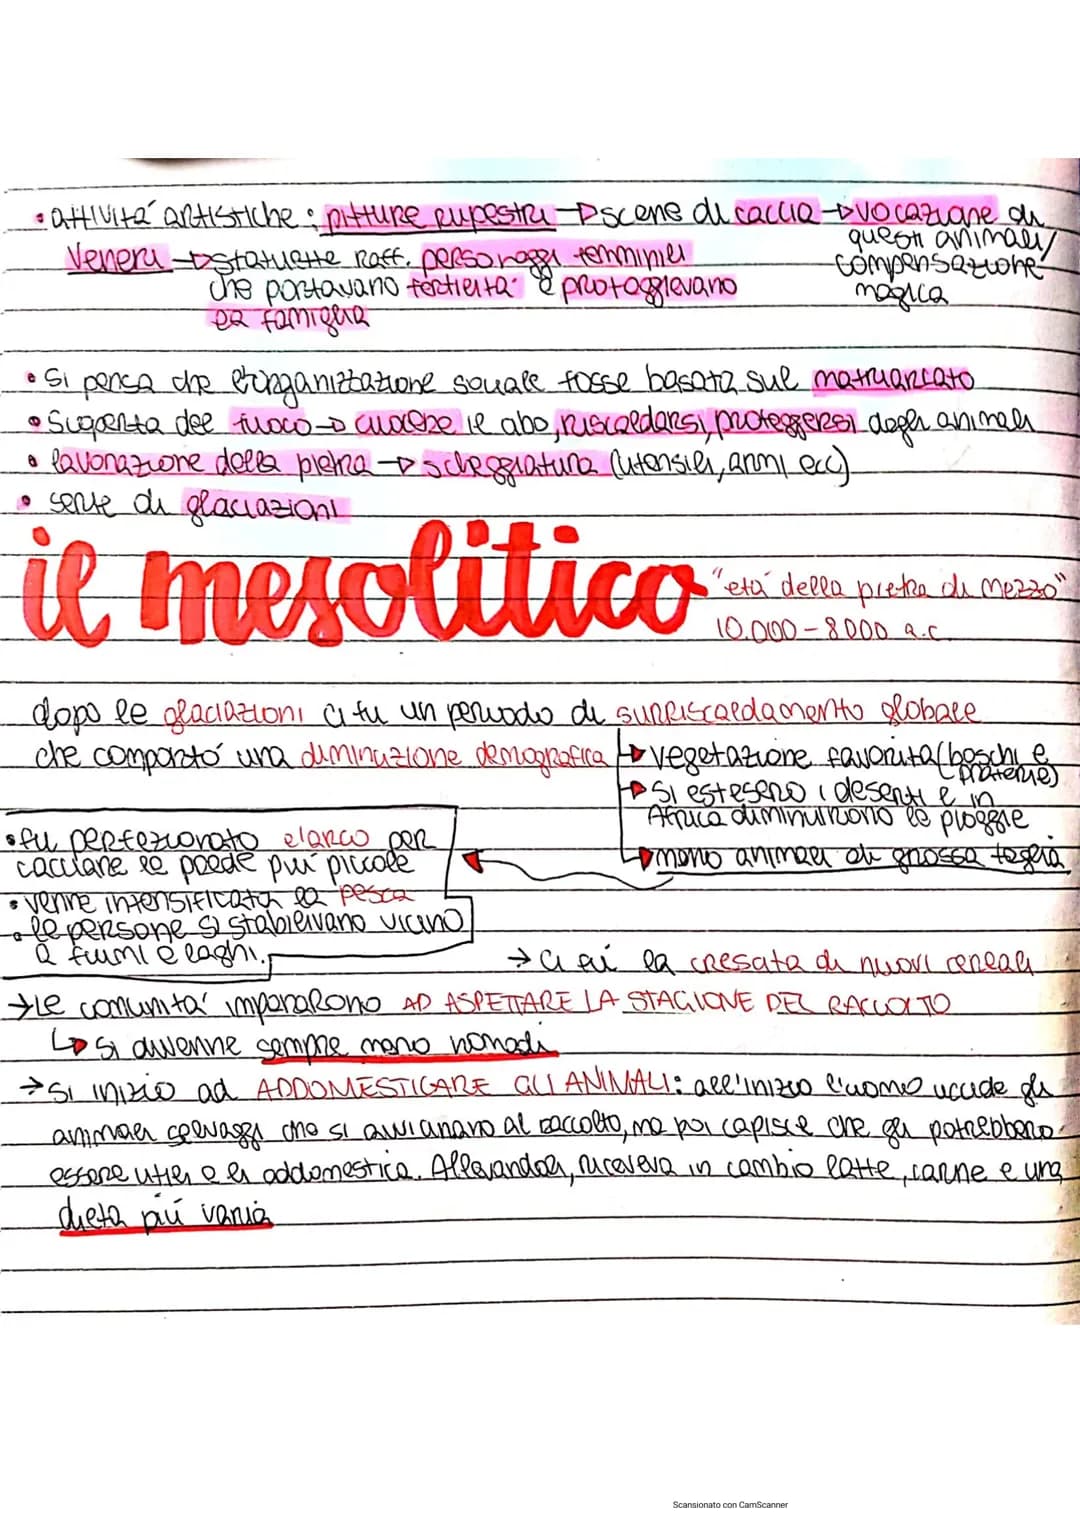 • attività artistiche: pitture rupestri → scene di caccia → vocazione di
questi animali/
compensazione
magica
Veneri → statuette raff. personaggi femminili
che portavano fertilità e proteggevano
la famiglia
• Si pensa che l'organizzazione sociale fosse basata sul matriarcato
• Scoperta del fuoco → cuocere il cibo, riscaldarsi, proteggersi dagli animali
• lavorazione della pietra → scheggiatura (utensili, armi ecc)
• serie di glaciazioni
il mesolitico
"età della pietra di mezzo"
10.000 - 8000 a.c.
dopo le glaciazioni ci fu un periodo di surriscaldamento globale
che comportò una diminuzione demografica
→ vegetazione favorita (boschi e
praterie)
→ Si estesero i deserti e in
Africa diminuirono le piogge
→ meno animali di grossa taglia
• fu perfezionato l'arco per
cacciare le prede più piccole
• venne intensificata la pesca
• le persone si stabilivano vicino
a fiumi e laghi.
→ ci fu la crescita di nuovi cereali
→ Le comunità impararono AD ASPETTARE LA STAGIONE DEL RACCOLTO
↳ Si divenne sempre meno nomadi
→ Si iniziò ad ADDOMESTICARE GLI ANIMALI: all'inizio l'uomo uccide gli
animali selvaggi che si avvicinano al raccolto, ma poi capisce che gli potrebbero
essere utili e li addomestica. Allevandoli, riceveva in cambio latte, carne e una
dieta più varia
Scansionato con CamScanner